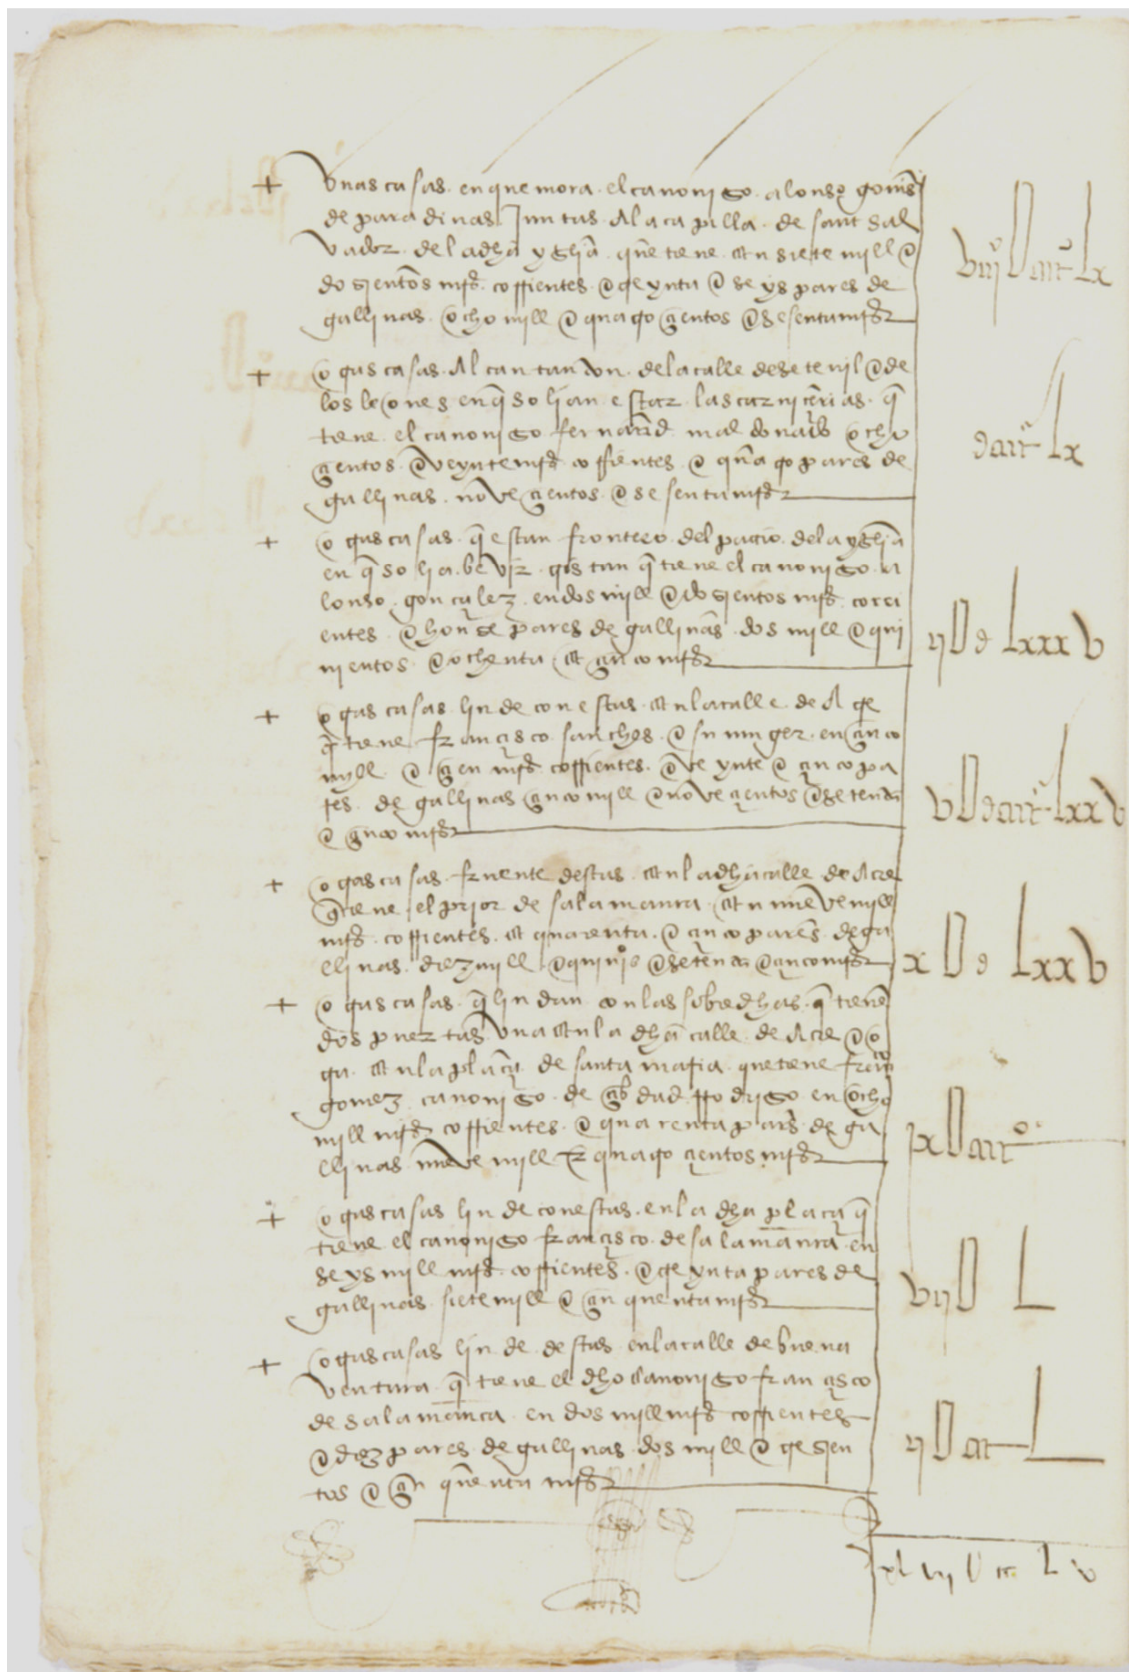 + Vnas casas. en que mora. el canonigo. alonso gomes
de paradinas Juntas Al a capilla. de sant sal
vador. de la dha yglia. que tiene. en siete mill e
dosientos mrs. corrientes. e treynta e seys pares de
gallinas. ocho mill e quatroçientos e sesenta mrs
viijº U cccc lx
+ otras casas. Al canton. de la calle de setenil e de
los leones en q solian estar las carniçerias. q
tiene. el canonigo fernand maldonado ocho
çientos. e veynte mrs corrientes. e quatro pares de
gallinas. noveçientos. e sesenta mrs
dcccc lx
+ otras casas. q estan frontero. del pacio. de la yglia
en q solia. bevir. tristan q tiene el canonigo. a
lonso. gonçalez. en dos mill e dosientos mrs. corri
entes. e honse pares de gallinas. dos mill e qui
nientos. e ochenta et çinco mrs
ij U d lxxx v
+ otras casas. linde con estas. en la calle. de Acre
q tiene françisco. sanches. e su muger. en çinco
myll. e çien mrs. corrientes. e veynte e çinco pa
res. de gallinas çinco mill e noveçientos e setenta
e çinco mrs
v U dcccc lxx v
+ otras casas. fruente destas. en la dha calle de Acre
q tiene. el prior de salamanca. en nueve mill
mrs. corrientes. et quarenta. e çinco pares. de ga
llinas. diez mill. e quinios e setenta e çinco mrs
x U d lxx v
+ otras casas. q lindan con las sobredhas. q tienen
dos puertas. Vna en la dha calle. de Acre e o
tra. en la plaça de santa maria. que tiene franco
gomez canonigo. de çibdad rrodrigo en ocho
mill mrs corrientes. e quarenta pares. de ga
llinas nueve mill e quatroçientos mrs
ix U cccc º
+ otras casas linde con estas. en la dha plaça q
tiene el canonigo françisco. de salamanca. en
seys mill mrs. corrientes. e treynta pares de
gallinas. siete mill e çinquenta mrs
vij U L
+ otras casas linde destas en la calle de buena
ventura. q tiene el dho canonigo françisco
de salamanca. en dos mill mrs corrientes
e diez pares de gallinas. dos mill e tresien
tos e çinquenta mrs
ij U ccc L
xl vij U ccc L v